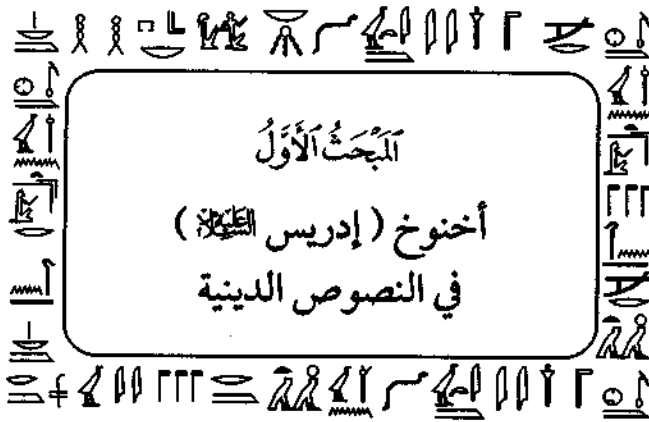 المَبْحَثُ الأَوَّلُ
أخنوخ ( إدريس عَلَيْهِ السَّلَام )
في النصوص الدينية